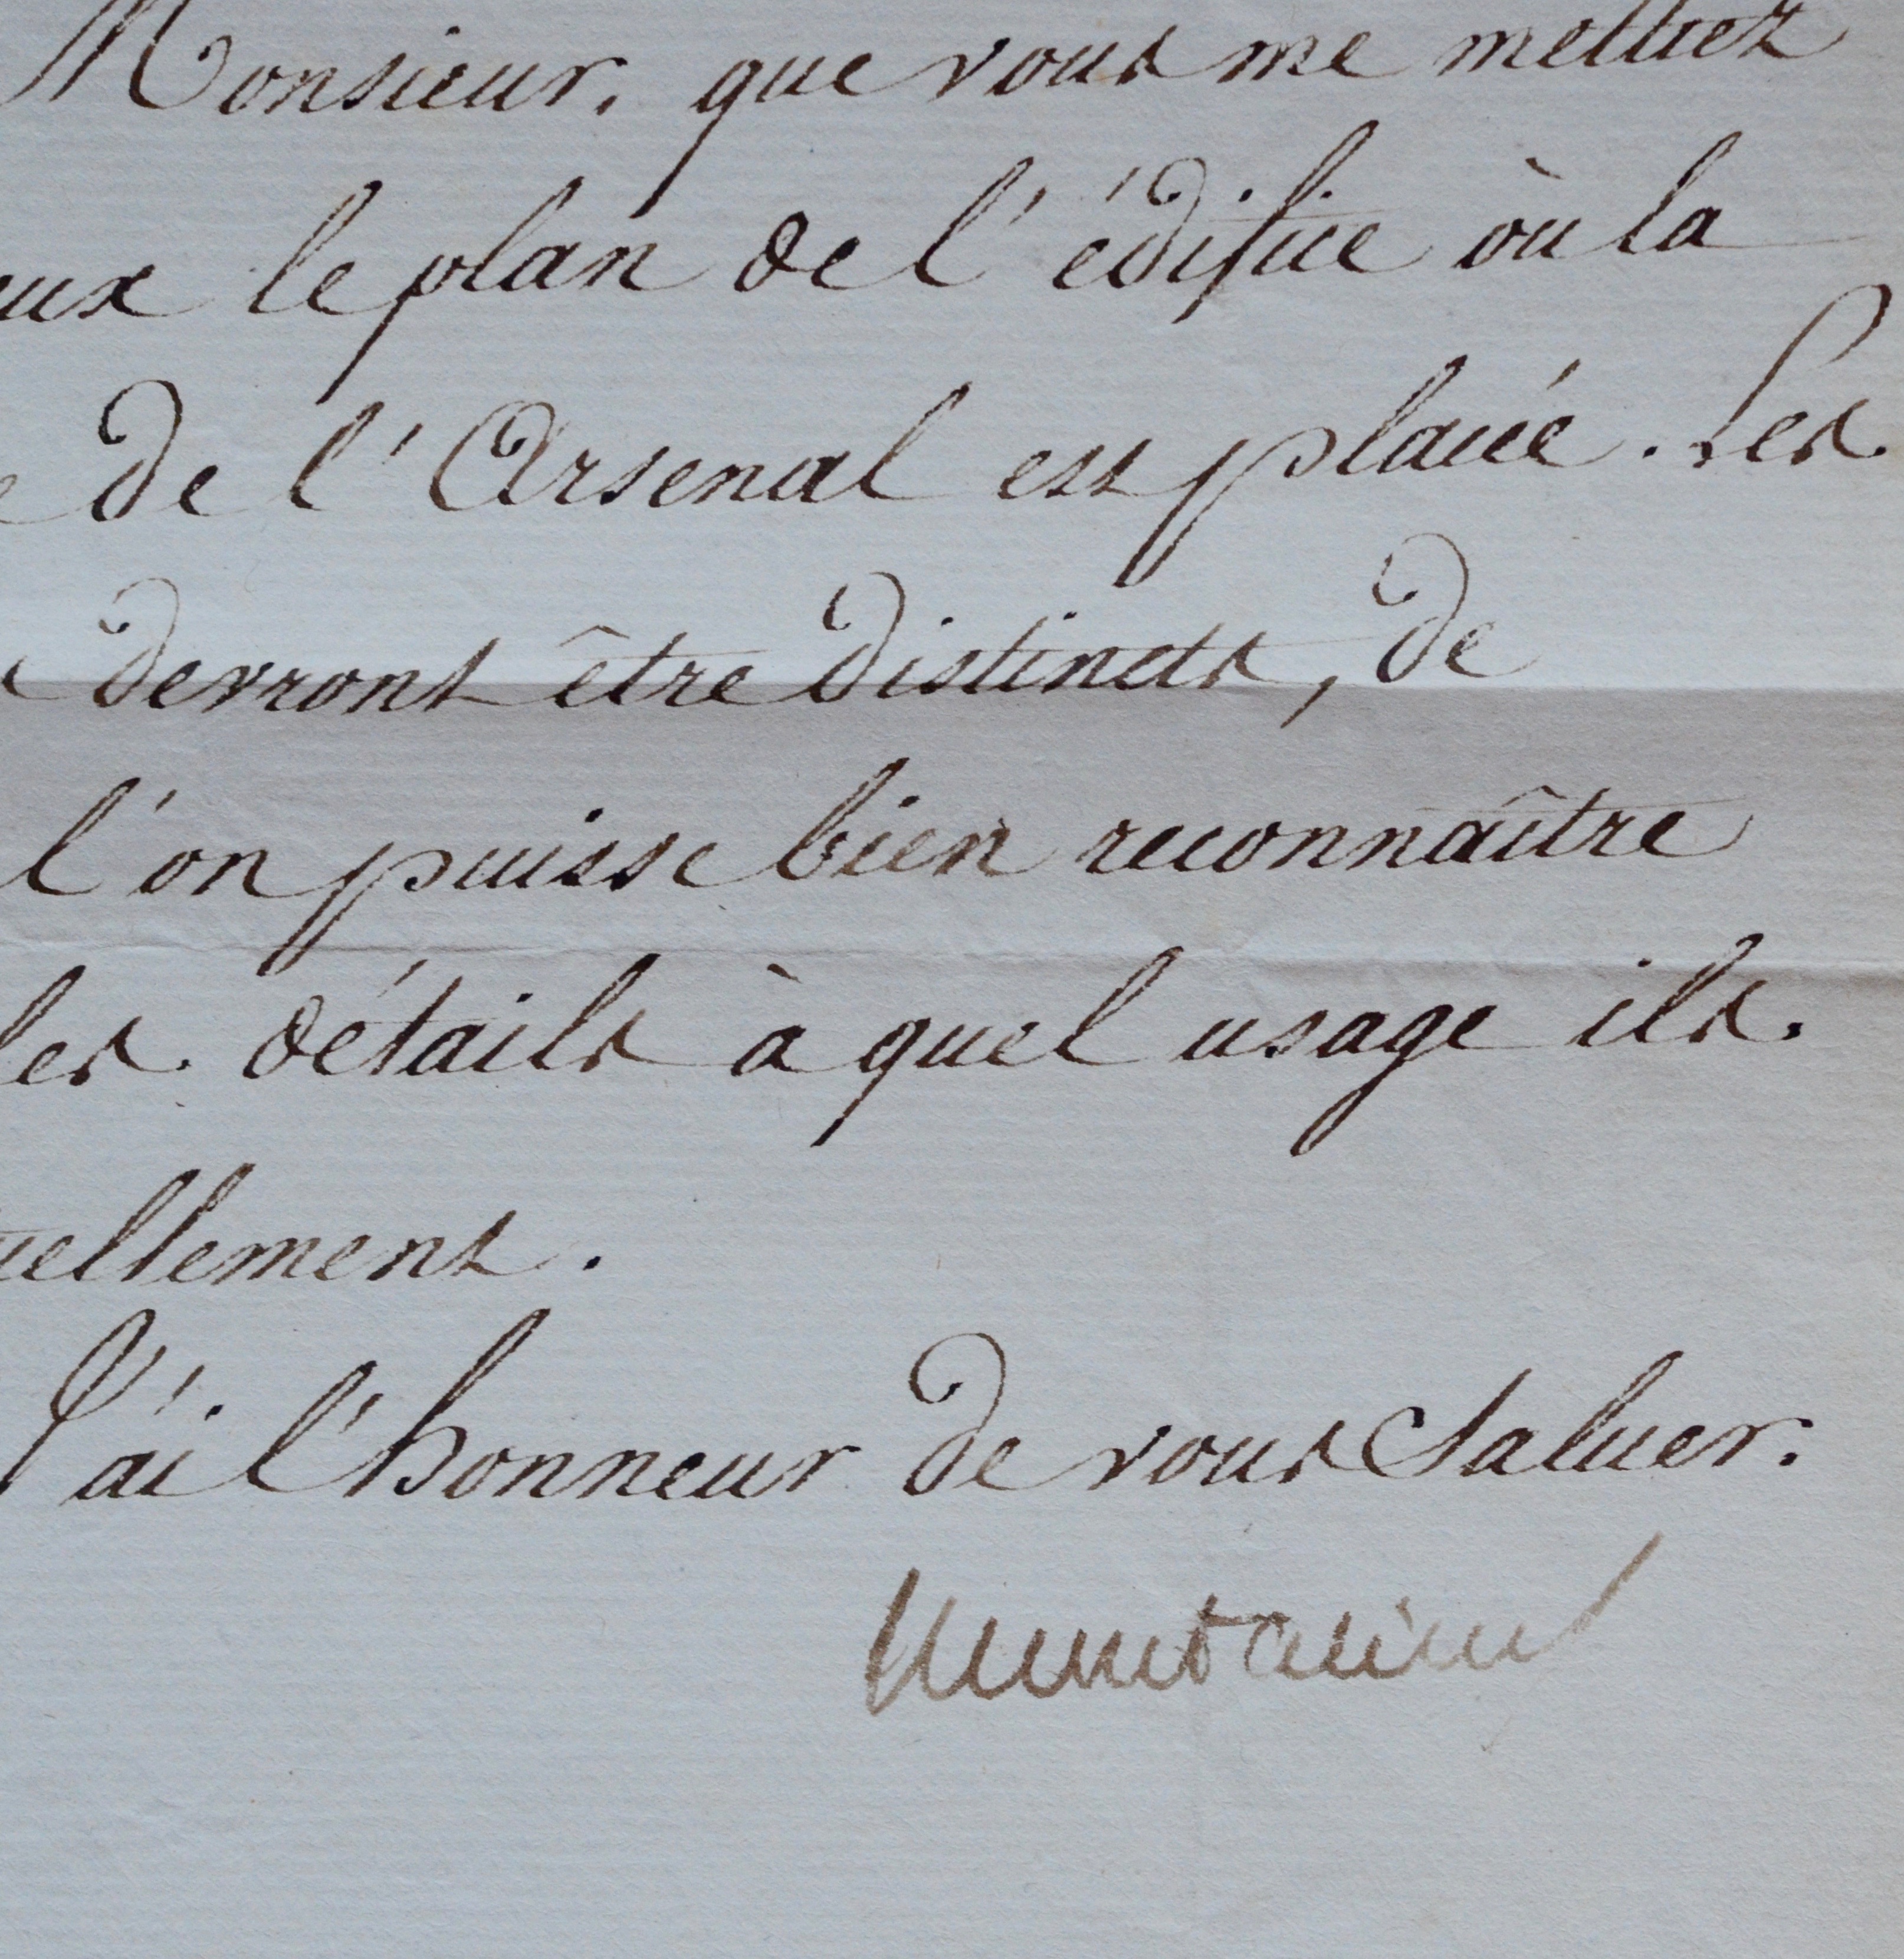 Monsieur, que vous me mettiez
le plan de l'édifice où la
de l'Arsenal est placée. Les
devront être distincts, de
l'on puisse bien reconnaître
les détails à quel usage ils
ellement.
J'ai l'honneur de vous Saluer.